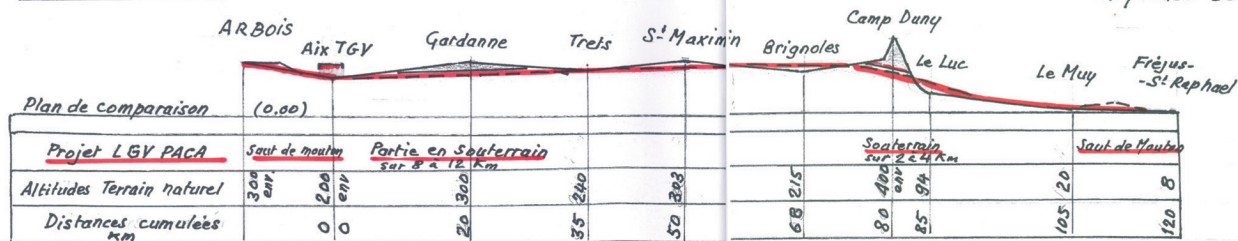 ARBOIS
Aix TGV
Gardanne
Trets
St Maximin
Brignoles
Camp Dany
Le Luc
Le Muy
Fréjus-
-St Raphael
Plan de comparaison (0.00)
Projet LGV PACA
Saut de mouton
Partie en souterrain
sur 8 à 12 Km
Souterrain
sur 2 à 4 Km
Saut de Mouton
Altitudes Terrain naturel
300 env. 200 env 300 240 303 215 400 env 94 20 8
Distances cumulées
Km
0 0 20 35 50 68 80 85 105 120